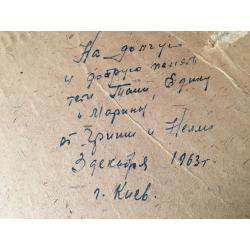 На долгую
и добрую память
тёти Тани Едику
и Марины
от Гриши и Нелли
3 декабря 1963 г.
г. Киев.